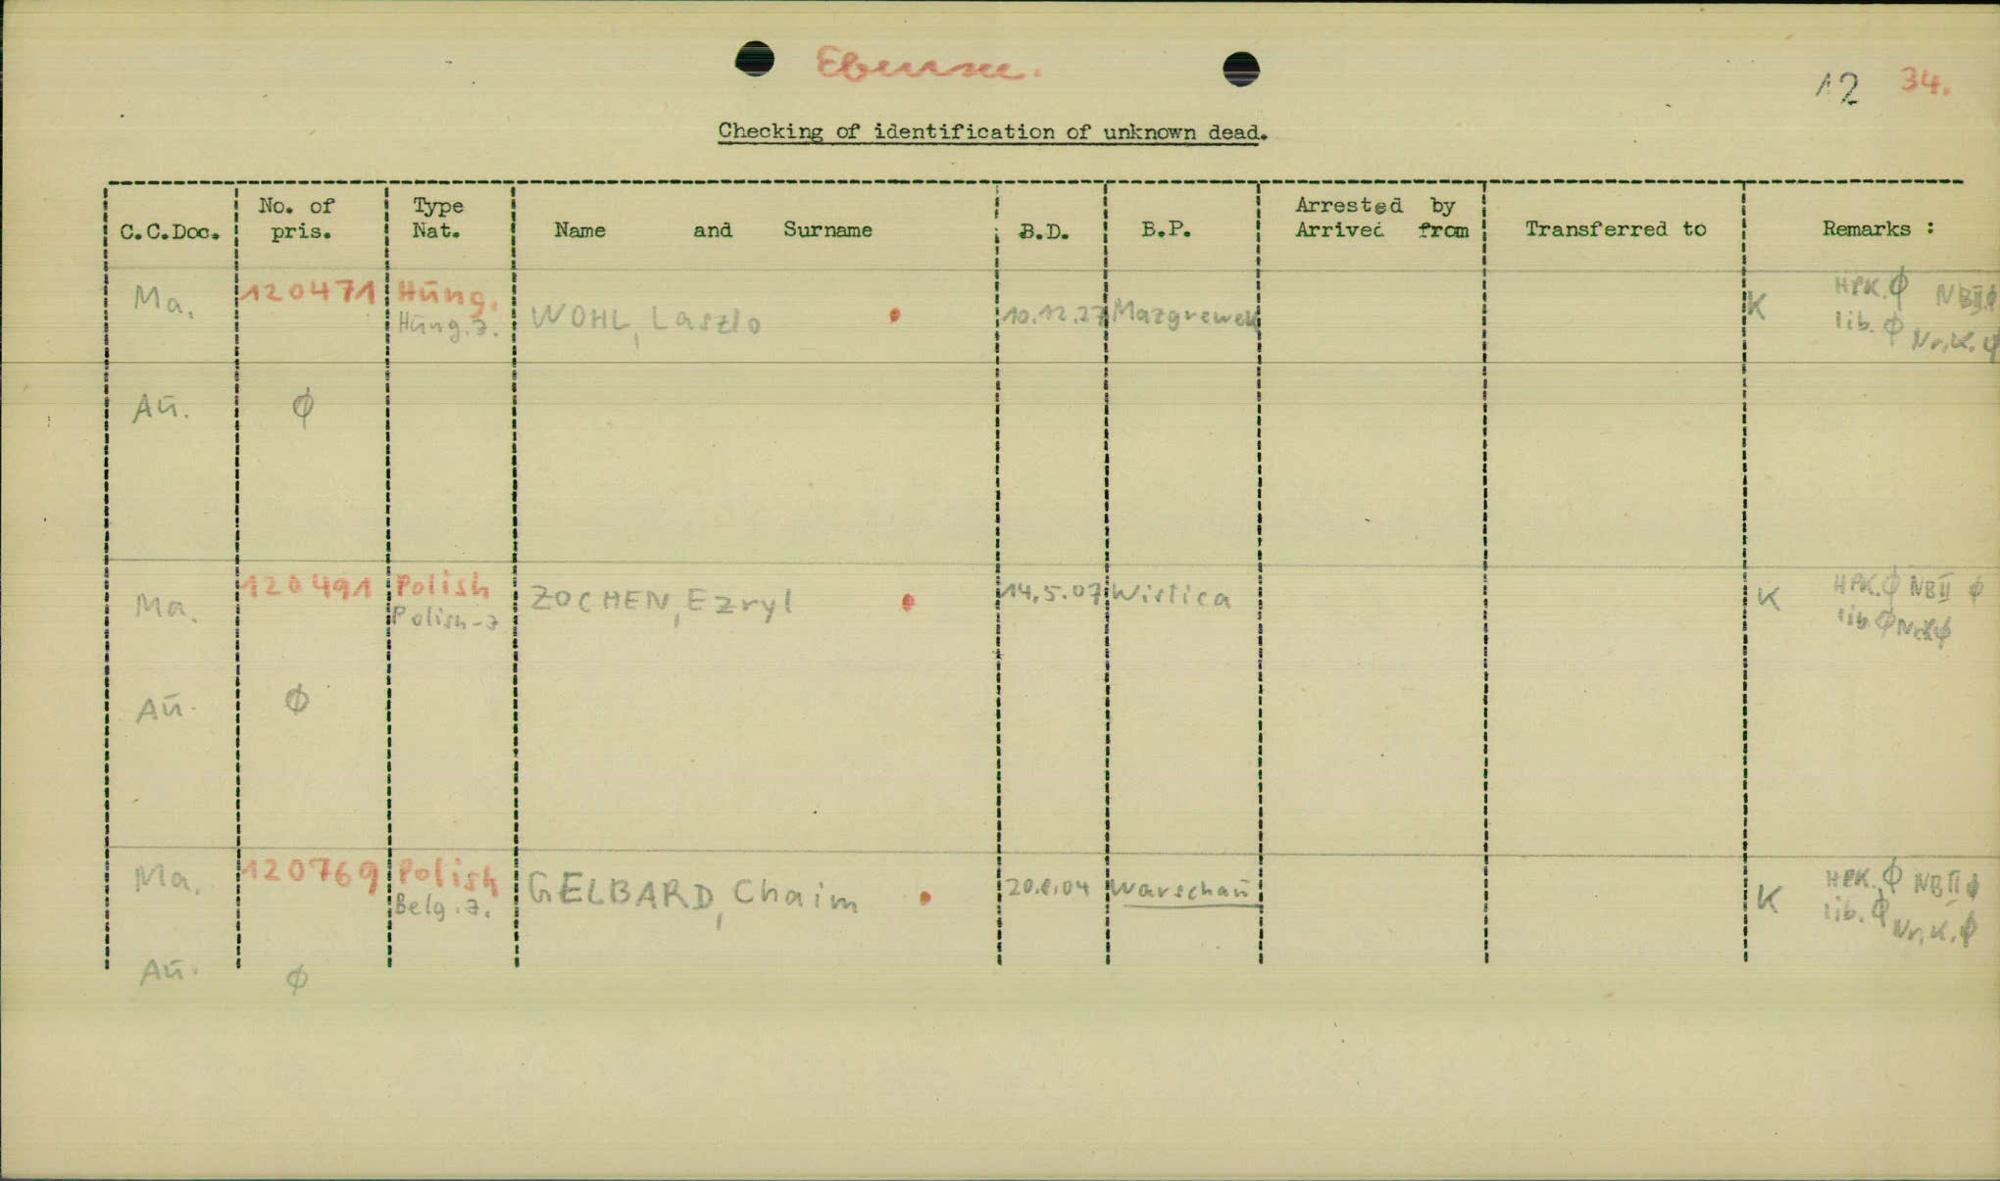 Ebensee.
12 34.
Checking of identification of unknown dead.
C.C.Doc. No. of pris. Type Nat. Name and Surname B.D. B.P. Arrested by Arrived from Transferred to Remarks :
Ma. 120471 Hüng. WOHL, Laszlo 10.12.27 Mazgrewek K HPK. ϕ NBII ϕ
Hüng.J. lib. ϕ Nr.K. ϕ
Aü. ϕ
Ma. 120491 Polish ZOCHEN, Ezryl 14.5.07 Wislica K HPK. ϕ NBII ϕ
Polish-J lib. ϕ NrK ϕ
Aü. ϕ
Ma. 120769 Polish GELBARD, Chaim Warschaü K HPK. ϕ NBII ϕ
Belg.J. lib. ϕ Nr.K. ϕ
Aü. ϕ